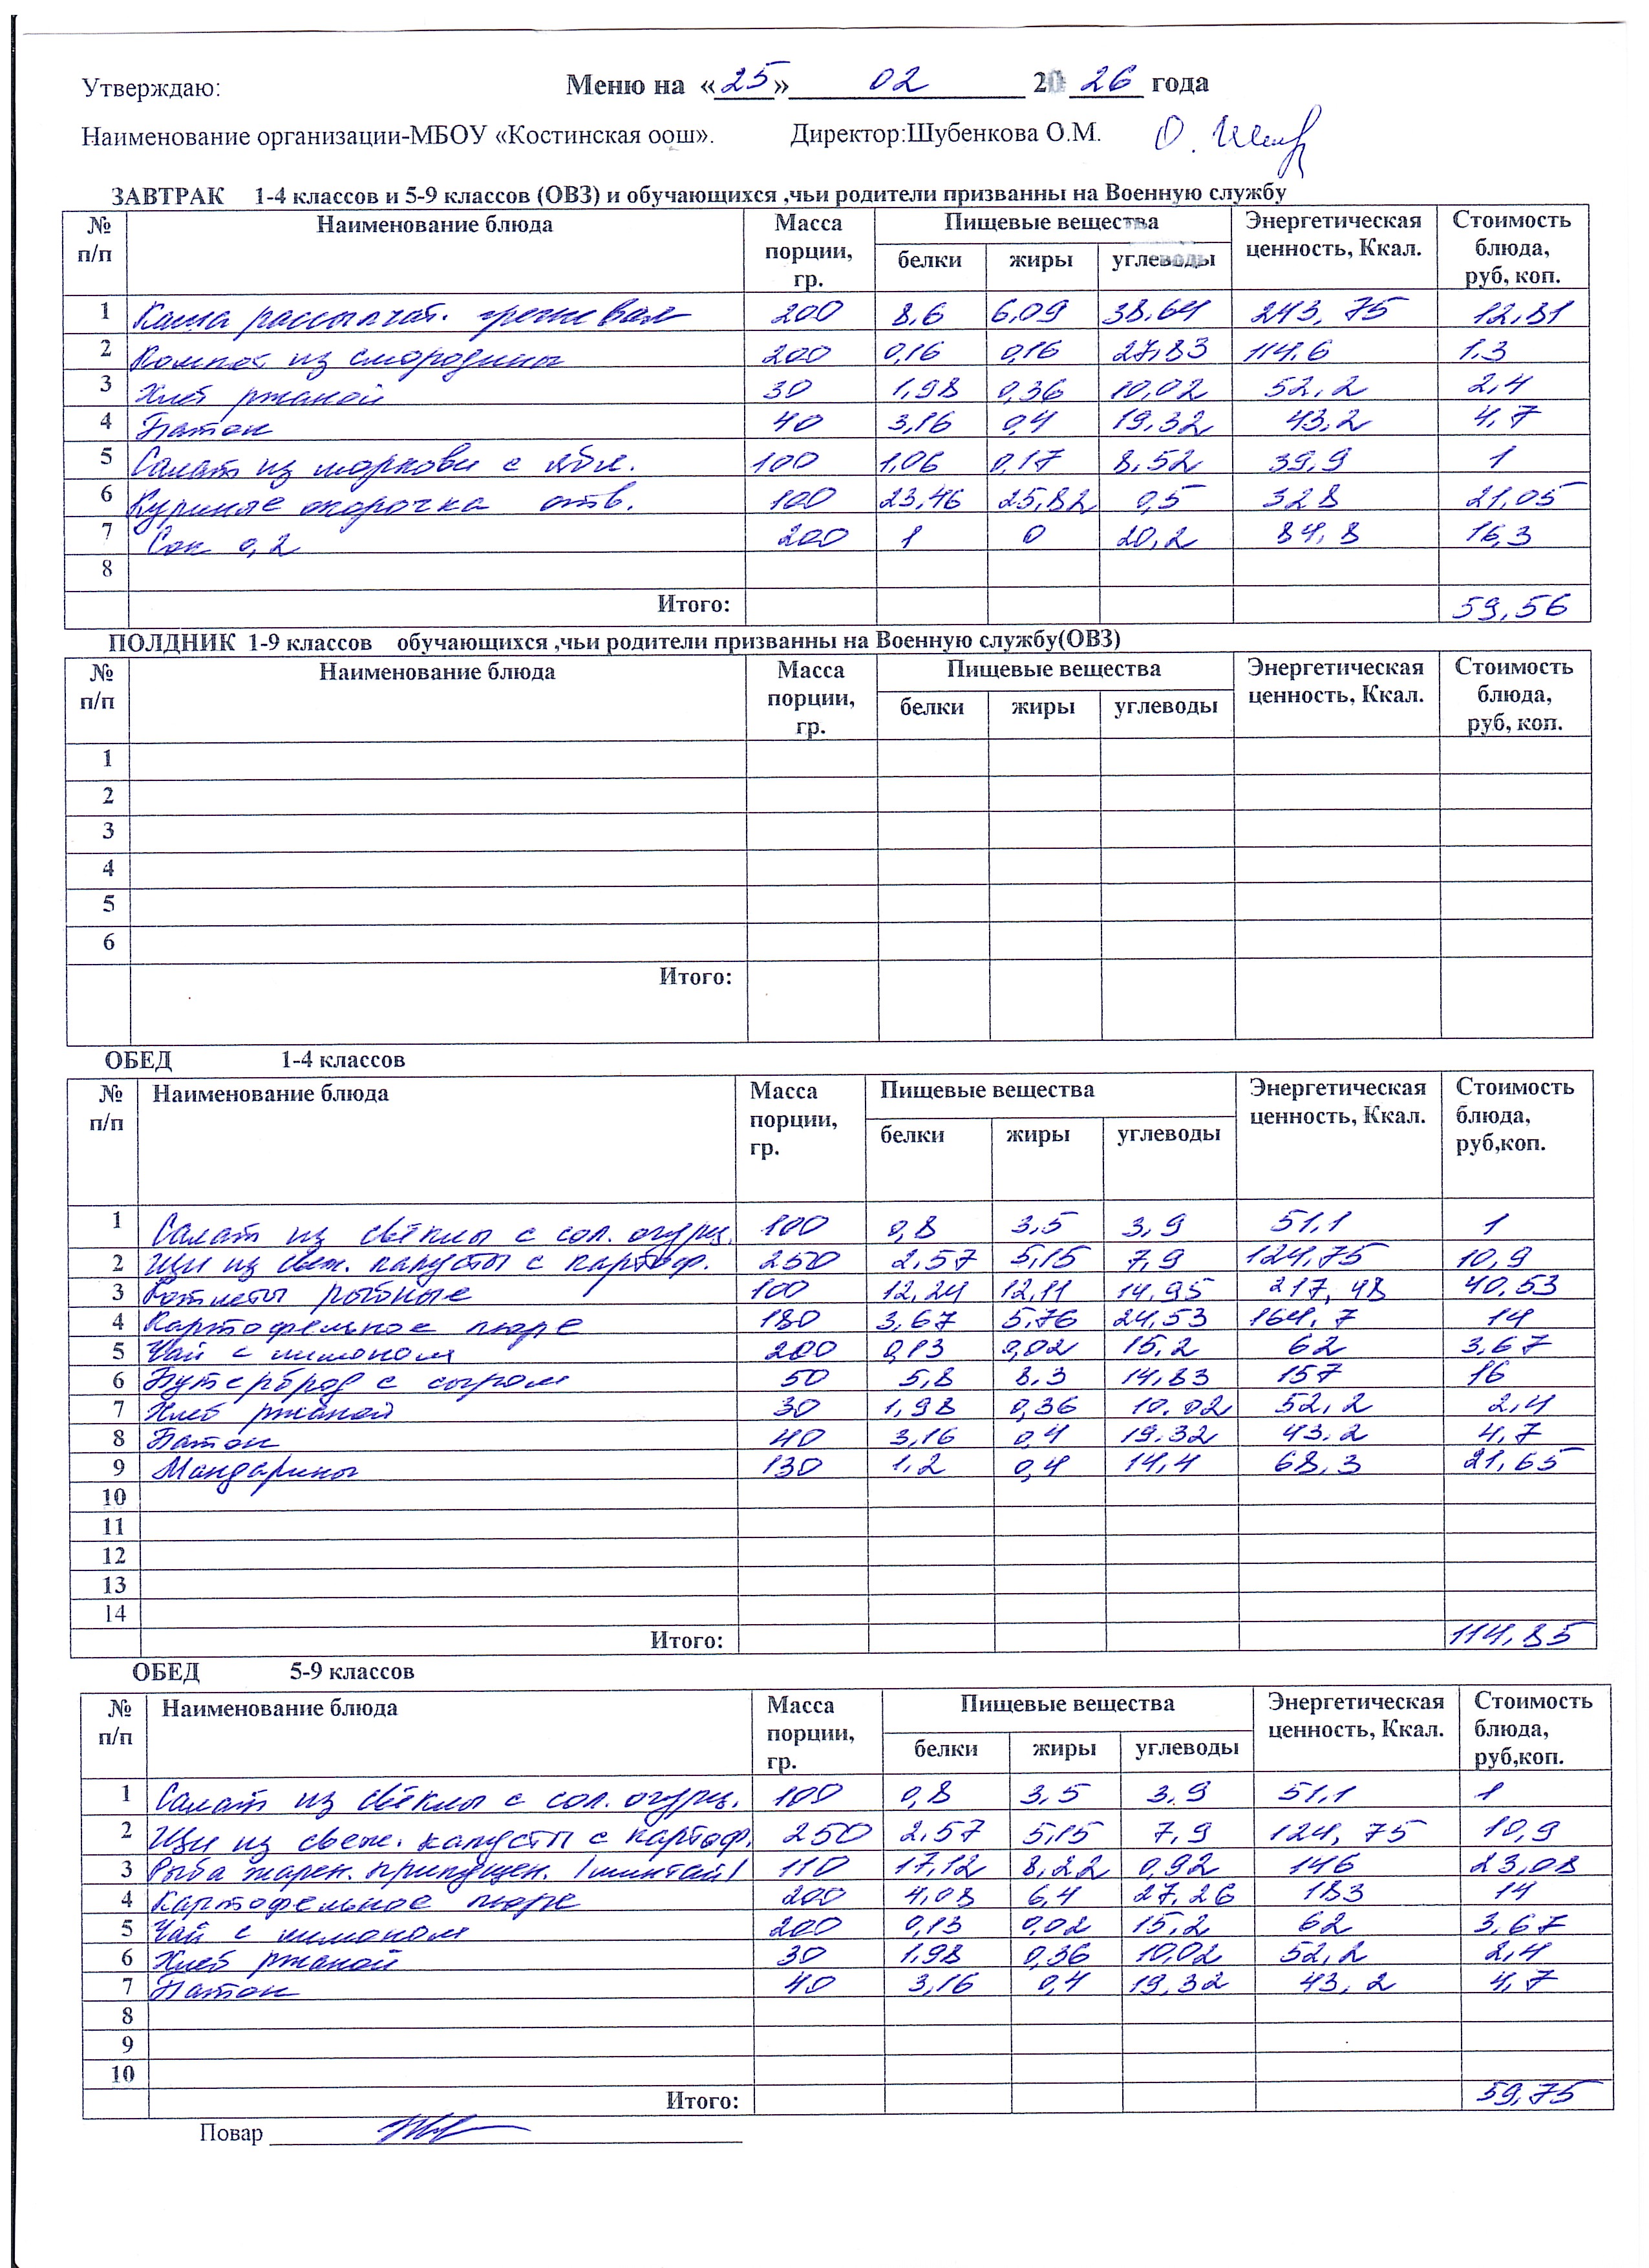 Утверждаю: Меню на «25» 02 20 26 года
Наименование организации-МБОУ «Костинская оош». Директор:Шубенкова О.М.
ЗАВТРАК 1-4 классов и 5-9 классов (ОВЗ) и обучающихся ,чьи родители призванны на Военную службу
№ п/п Наименование блюда Масса порции, гр. Пищевые вещества Энергетическая ценность, Ккал. Стоимость блюда, руб, коп.
белки жиры углеводы
1 Каша рассыпчат. гречневая 200 8,6 6,09 38,64 243,75 12,81
2 Компот из смородины 200 0,16 0,16 27,83 114,6 1,3
3 Хлеб ржаной 30 1,98 0,36 10,02 52,2 2,4
4 Батон 40 3,16 0,4 19,32 43,2 4,7
5 Салат из моркови с ябл. 100 1,06 0,17 8,52 39,9 1
6 Куриные окорочка отв. 100 23,46 25,82 0,5 328 21,05
7 Сок 0,2 200 1 0 20,2 84,8 16,3
8
Итого: 59,56
ПОЛДНИК 1-9 классов обучающихся ,чьи родители призванны на Военную службу(ОВЗ)
№ п/п Наименование блюда Масса порции, гр. Пищевые вещества Энергетическая ценность, Ккал. Стоимость блюда, руб, коп.
белки жиры углеводы
1
2
3
4
5
6
Итого:
ОБЕД 1-4 классов
№ п/п Наименование блюда Масса порции, гр. Пищевые вещества Энергетическая ценность, Ккал. Стоимость блюда, руб,коп.
белки жиры углеводы
1 Салат из свёклы с сол. огурц. 100 0,8 3,5 3,9 51,1 1
2 Щи из свеж. капусты с картоф. 250 2,57 5,15 7,9 124,75 10,9
3 Котлеты рыбные 100 12,24 12,11 14,95 217,48 40,53
4 Картофельное пюре 180 3,67 5,76 24,53 164,7 14
5 Чай с лимоном 200 0,13 0,02 15,2 62 3,67
6 Бутерброд с сыром 50 5,8 8.3 14,83 157 16
7 Хлеб ржаной 30 1,98 0,36 10.02 52,2 2,4
8 Батон 40 3,16 0,4 19.32 43,2 4,7
9 Мандарины 130 1,2 0,4 14,4 68,3 21,65
10
11
12
13
14
Итого: 114,85
ОБЕД 5-9 классов
№ п/п Наименование блюда Масса порции, гр. Пищевые вещества Энергетическая ценность, Ккал. Стоимость блюда, руб,коп.
белки жиры углеводы
1 Салат из свёклы с сол. огурц. 100 0,8 3,5 3,9 51,1 1
2 Щи из свеж. капусты с картоф. 250 2,57 5,15 7,9 124,75 10,9
3 Рыба жарен. припущен. /минтай/ 110 17,12 8,22 0,92 146 23,08
4 Картофельное пюре 200 4,08 6,4 27,26 183 14
5 Чай с лимоном 200 0,13 0,02 15,2 62 3,67
6 Хлеб ржаной 30 1,98 0,36 10,02 52,2 2,4
7 Батон 40 3,16 0,4 19,32 43,2 4,7
8
9
10
Итого: 59,75
Повар